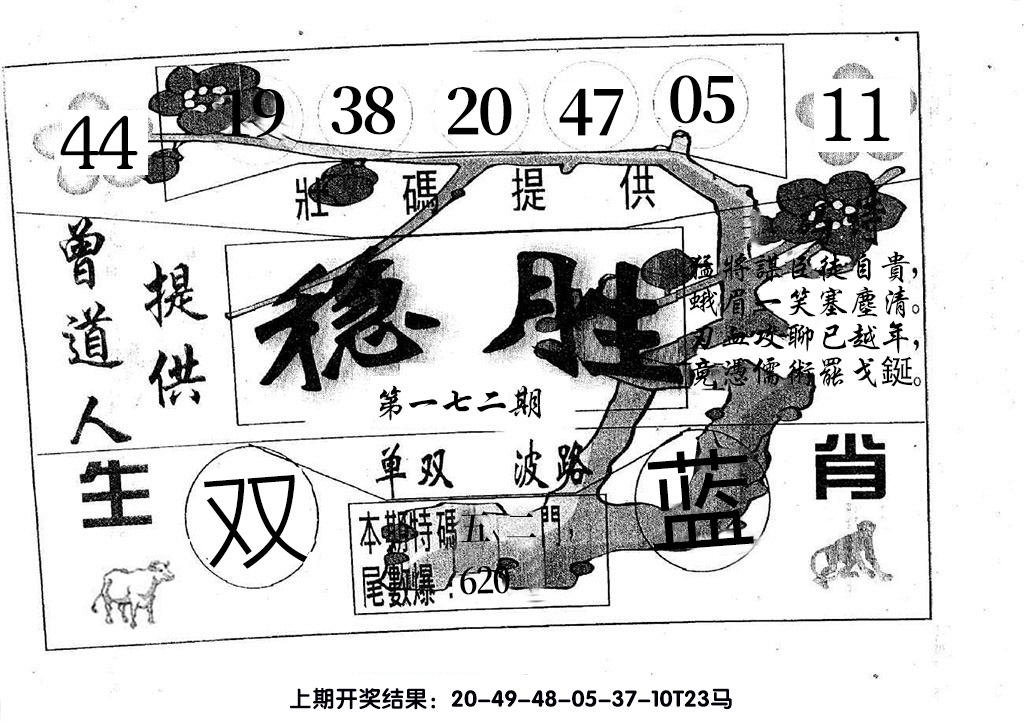 44 19 38 20 47 05 11
壯碼提供
曾道人
提供
稳胜
第一七二期
猛將謀臣徒自貴，
蛾眉一笑塞塵清。
刃血攻聊已越年，
竟憑儒術罷戈鋋。
单双 波路
生肖
双
蓝
本期特碼五、二門，
尾數爆：620
上期开奖结果：20-49-48-05-37-10T23马